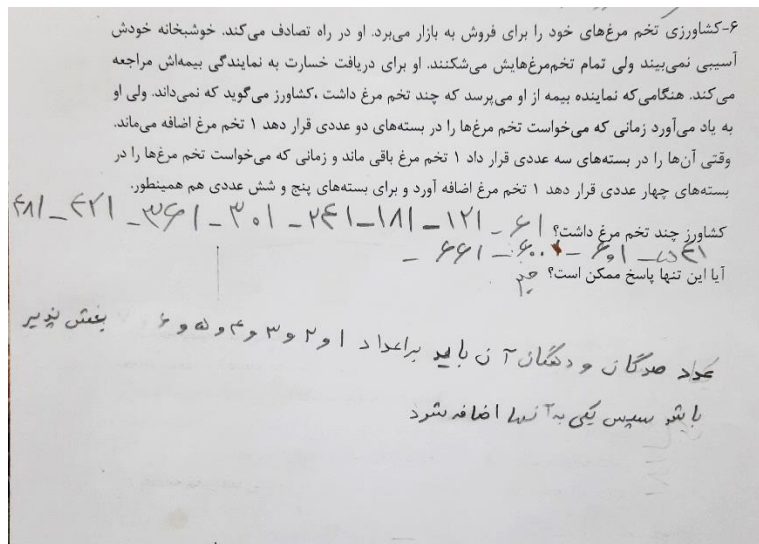 ۶-کشاورزی تخم مرغ‌های خود را برای فروش به بازار می‌برد. او در راه تصادف می‌کند. خوشبختانه خودش
آسیبی نمی‌بیند ولی تمام تخم‌مرغ‌هایش می‌شکنند. او برای دریافت خسارت به نمایندگی بیمه‌اش مراجعه
می‌کند. هنگامی‌که نماینده بیمه از او می‌پرسد که چند تخم مرغ داشت ،کشاورز می‌گوید که نمی‌داند. ولی او
به یاد می‌آورد زمانی که می‌خواست تخم مرغ‌ها را در بسته‌های دو عددی قرار دهد ۱ تخم مرغ اضافه می‌ماند.
وقتی آن‌ها را در بسته‌های سه عددی قرار داد ۱ تخم مرغ باقی ماند و زمانی که می‌خواست تخم مرغ‌ها را در
بسته‌های چهار عددی قرار دهد ۱ تخم مرغ اضافه آورد و برای بسته‌های پنج و شش عددی هم همینطور.
کشاورز چند تخم مرغ داشت؟ ۶۱ - ۱۲۱ - ۱۸۱ - ۲۴۱ - ۳۰۱ - ۳۶۱ - ۴۲۱ - ۴۸۱
۵۴۱ - ۶۰۱ - ۶۶۱ -
آیا این تنها پاسخ ممکن است؟ خیر
عدد صدگان و دهگان آن باید بر اعداد ۱ و ۲ و ۳ و ۴ و ۵ و ۶ بخش پذیر
باشد سپس یکی به آنها اضافه شود